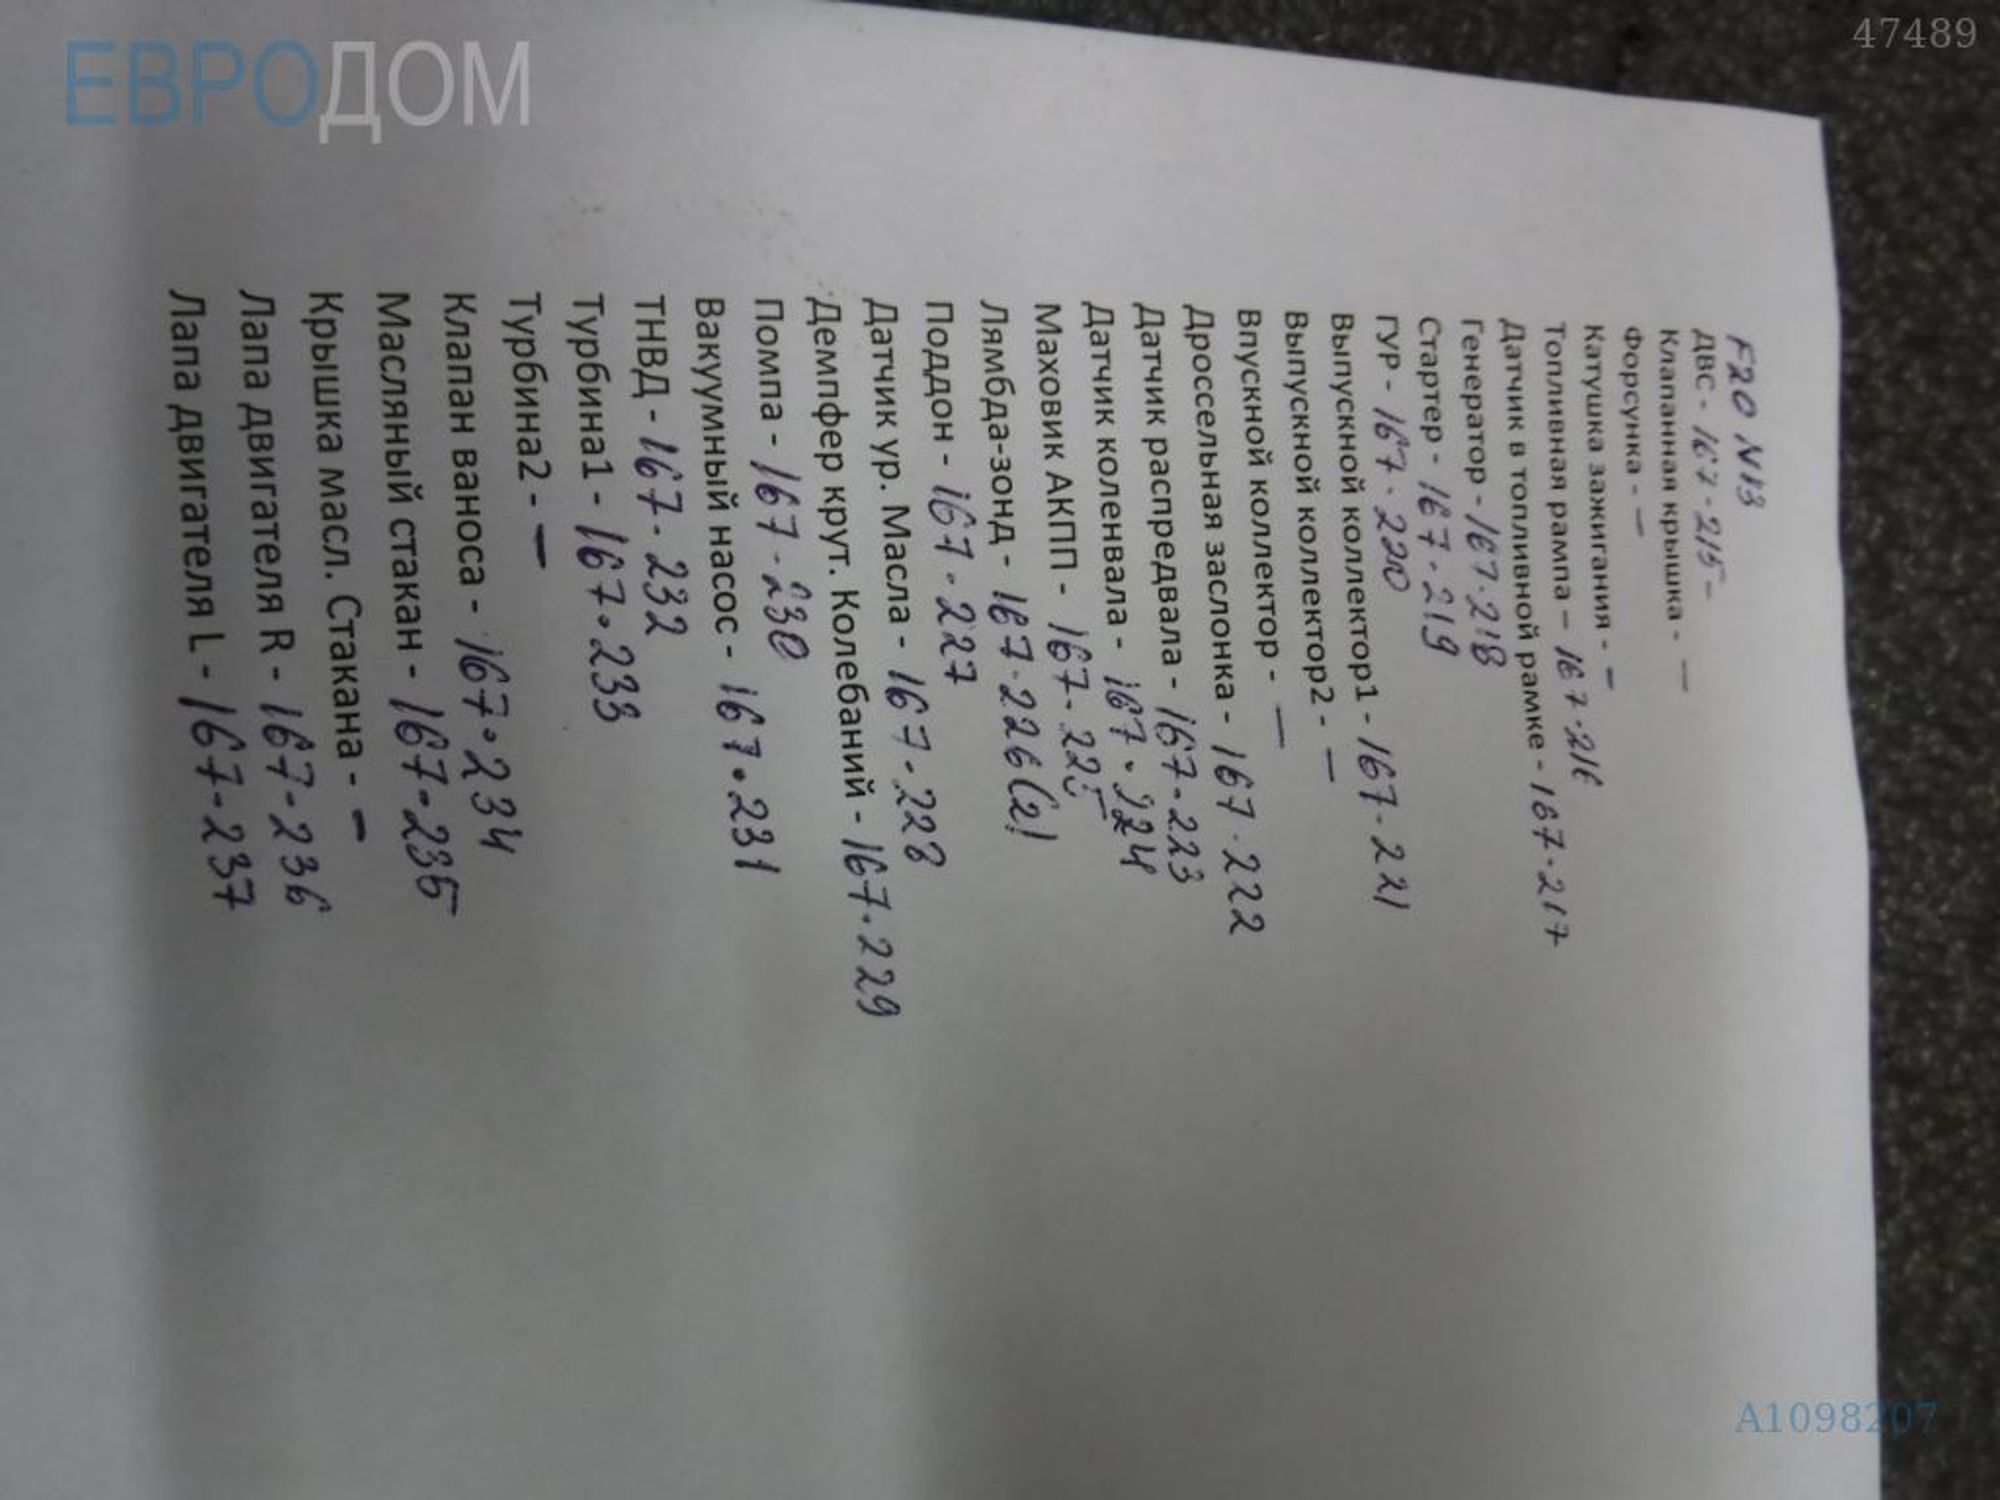 ЕВРОДОМ
47489
F20 N13
ДВС - 167-215-
Клапанная крышка - —
Форсунка - —
Катушка зажигания - –
Топливная рампа – 167-216
Датчик в топливной рамке - 167-217
Генератор - 167-218
Стартер - 167-219
ГУР - 167-220
Выпускной коллектор1 - 167-221
Выпускной коллектор2 - —
Впускной коллектор - —
Дроссельная заслонка - 167-222
Датчик распредвала - 167-223
Датчик коленвала - 167-224
Маховик АКПП - 167-225
Лямбда-зонд - 167-226(2)
Поддон - 167-227
Датчик ур. Масла - 167-228
Демпфер крут. Колебаний - 167-229
Помпа - 167-230
Вакуумный насос - 167-231
ТНВД - 167-232
Турбина1 - 167-233
Турбина2 - —
Клапан ваноса - 167-234
Масляный стакан - 167-235
Крышка масл. Стакана - –
Лапа двигателя R - 167-236
Лапа двигателя L - 167-237
A1098207